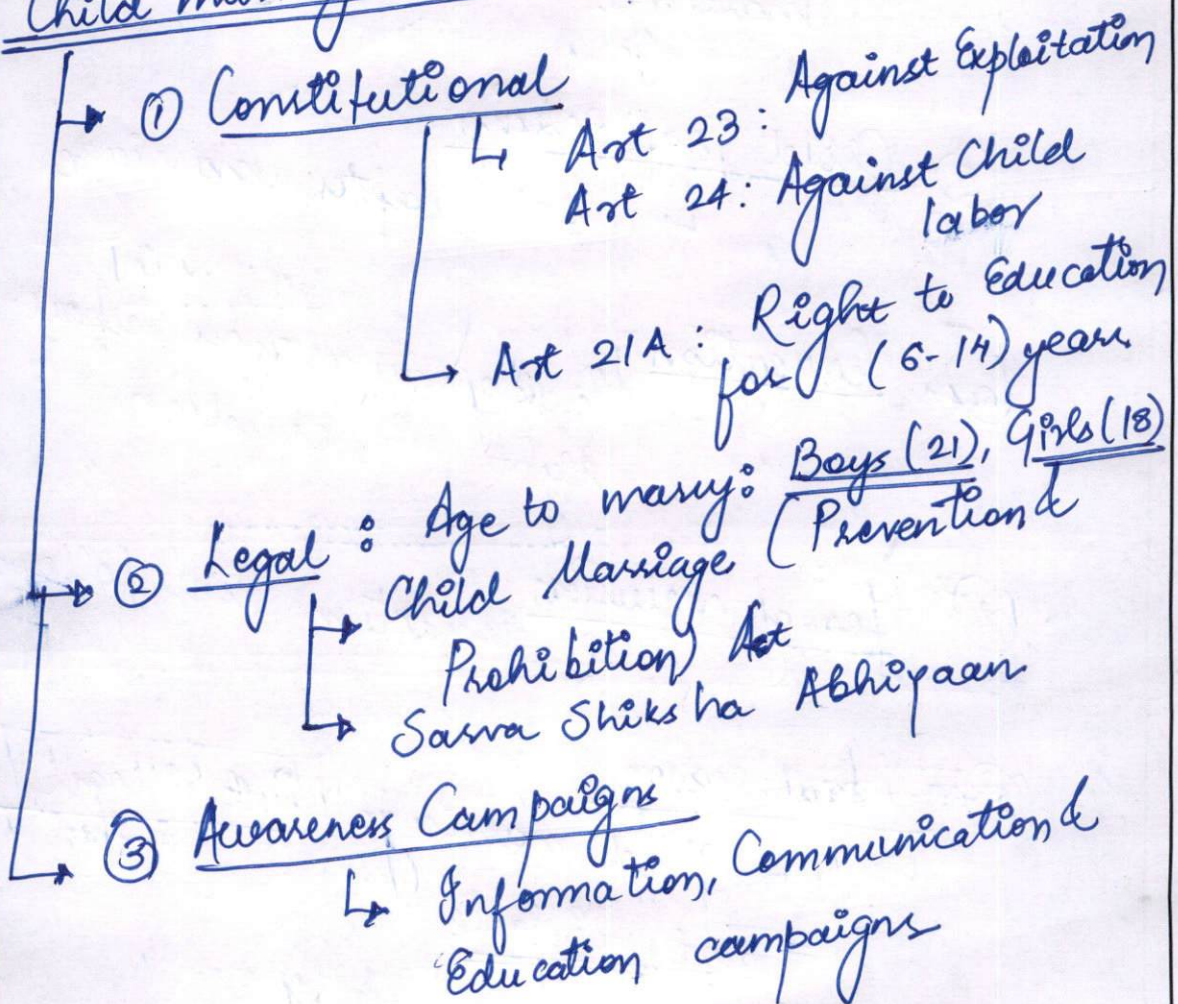 Child
① Constitutional
Art 23: Against Exploitation
Art 24: Against Child
labor
Art 21A: Right to Education
for (6-14) years
② Legal: Age to marry: Boys (21), Girls (18)
Child Marriage (Prevention &
Prohibition) Act
Sarva Shiksha Abhiyaan
③ Awareness Campaigns
Information, Communication &
Education campaigns